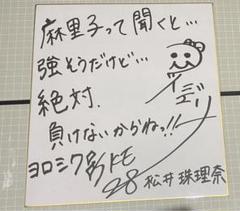 麻里子って聞くと…
強そうだけど…
絶対、
負けないからねっ!!
ヨロシク
松井 珠理奈